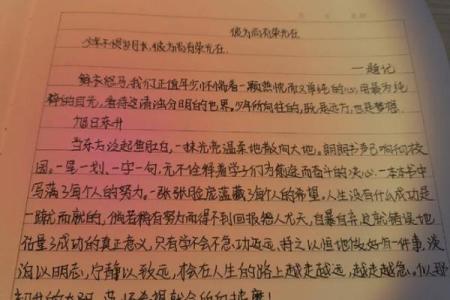 彼方尚有荣光在
少年不惧岁月长,彼方尚有荣光在.
—题记
鲜衣怒马,我们正值年少怀揣着一颗热忱而又单纯的心,用最为纯
粹的目光,看待这清浊分明的世界。少年所向往的,既是远方,也是梦想.
旭日东升
当东方泛起鱼肚白,一抹光亮温柔地散向大地。朗朗书声响彻校
园。一笔一划、一字一句,无不诠释着学子们为前途而奋斗的决心.一本本书中
写满了每个人的努力。一张张脸庞蕴藏了每个人的希望。人生没有什么成功是
一蹴而就的,倘若稍有努力而得不到回报怨人尤天,自暴自弃,这就错误地
估量了成功的真正意义,只有学会不急功近远,持之以恒地做好每件事,淡
泊以明志,宁静以致远,才会在人生的路上越走越远,越走越急。似那